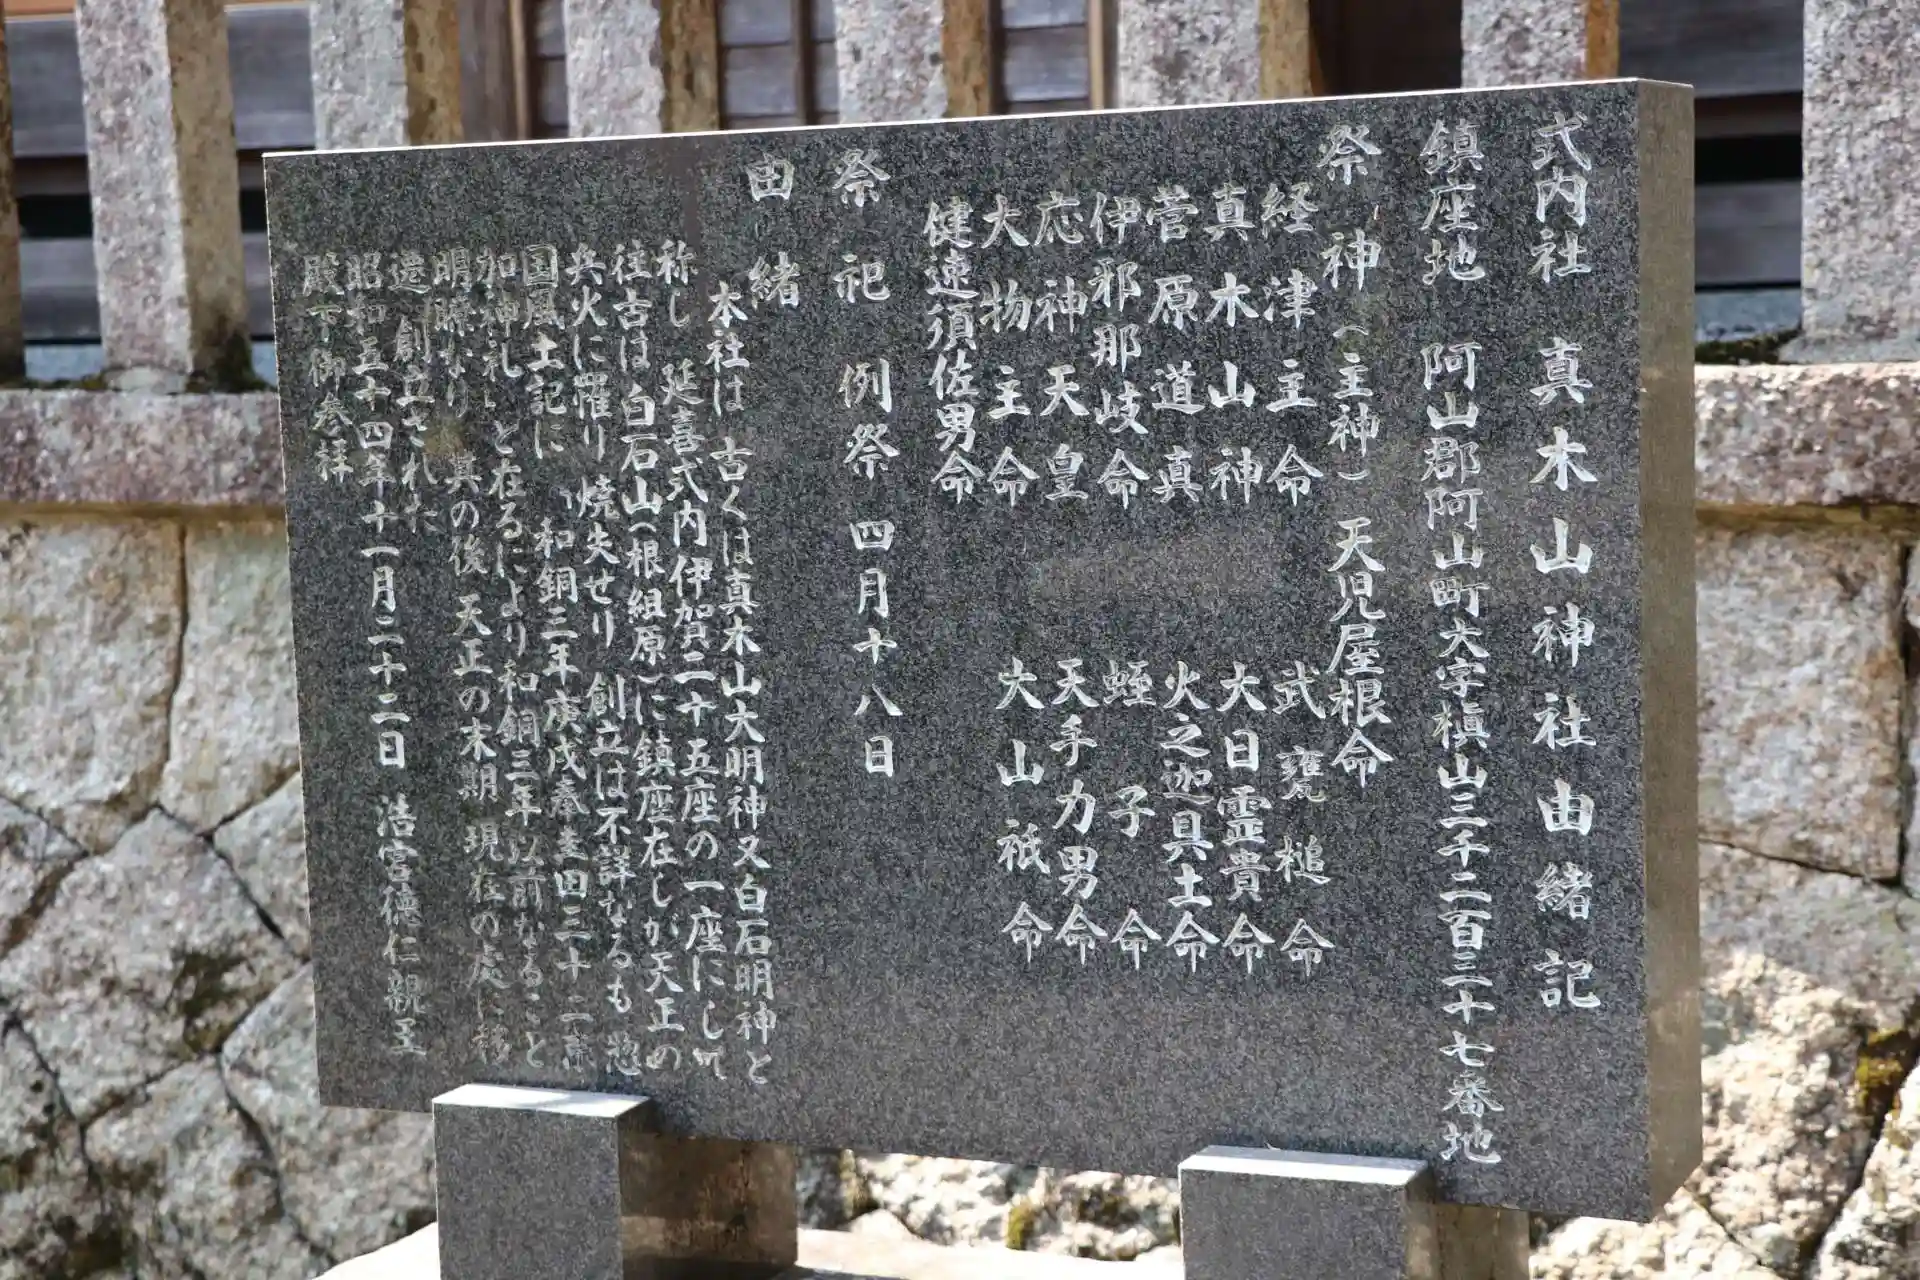 式内社 真木山神社由緒記
鎮座地 阿山郡阿山町大字槙山三千二百三十七番地
祭神(主神) 天児屋根命
経津主命 武甕槌命
真木山神 大日霊貴命
菅原道真 火之迦具土命
伊邪那岐命 蛭子命
応神天皇 天手力男命
大物主命 大山祇命
健速須佐男命
祭祀 例祭 四月十八日
由緒
本社は 古くは真木山大明神又白石明神と
称し 延喜式内伊賀二十五座の一座にして
往古は 白石山(根組原)に鎮座在しが天正の
兵火に罹り 焼失せり 創立は不詳なるも 惣
国風土記に 和銅三年庚戌奉圭田三十二束
加神礼 と在るにより和銅三年以前なること
明瞭なり 其の後 天正の末期 現在の処に移
遷 創立された
昭和五十四年十一月二十二日 浩宮徳仁親王
殿下御参拝